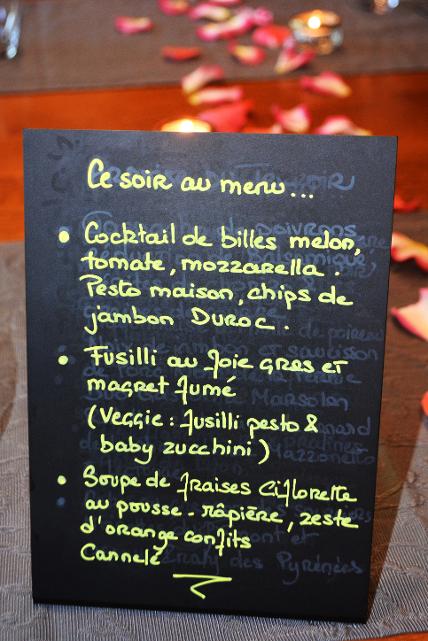 Ce soir au menu...
• Cocktail de billes melon,
tomate, mozzarella.
Pesto maison, chips de
jambon DUROC.
• Fusilli au foie gras et
magret fumé
(Veggie : fusilli pesto &
baby zucchini)
• Soupe de fraises Ciflorette
au pousse-râpière, zeste
d'orange confits
Cannelé